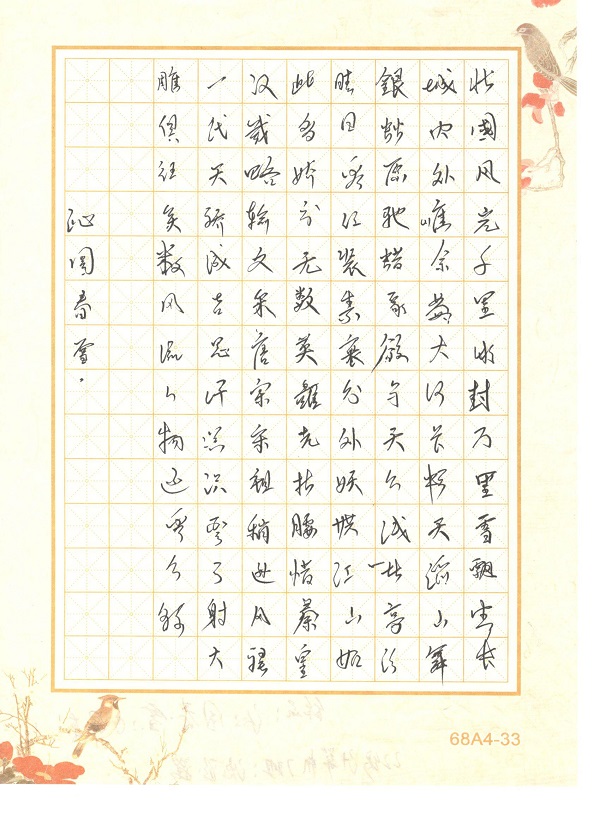 北國风光千里冰封万里雪飘望长
城内外惟余莽莽大河上下顿失滔滔山舞
銀蛇原驰蜡象欲与天公试比高须
晴日看红装素裹分外妖娆江山如
此多娇引无数英雄竞折腰惜秦皇
汉武略输文采唐宗宋祖稍逊风骚
一代天骄成吉思汗只识弯弓射大
雕俱往矣数风流人物还看今朝
沁园春雪.
68A4-33